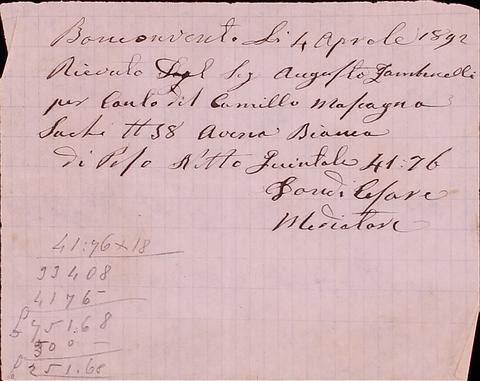 Bonconvento Li 4 Aprole 1892
Ricevuto Dal Sig Augusto
per Conto del Camillo Mascagna
Sachi 38 Avena Bianca
di Peso Netto Quintale 41:76
Bondi Cesare
Mediatore
41:76 x 18
33408
4176
£ 751:68
500 –
£ 251.68